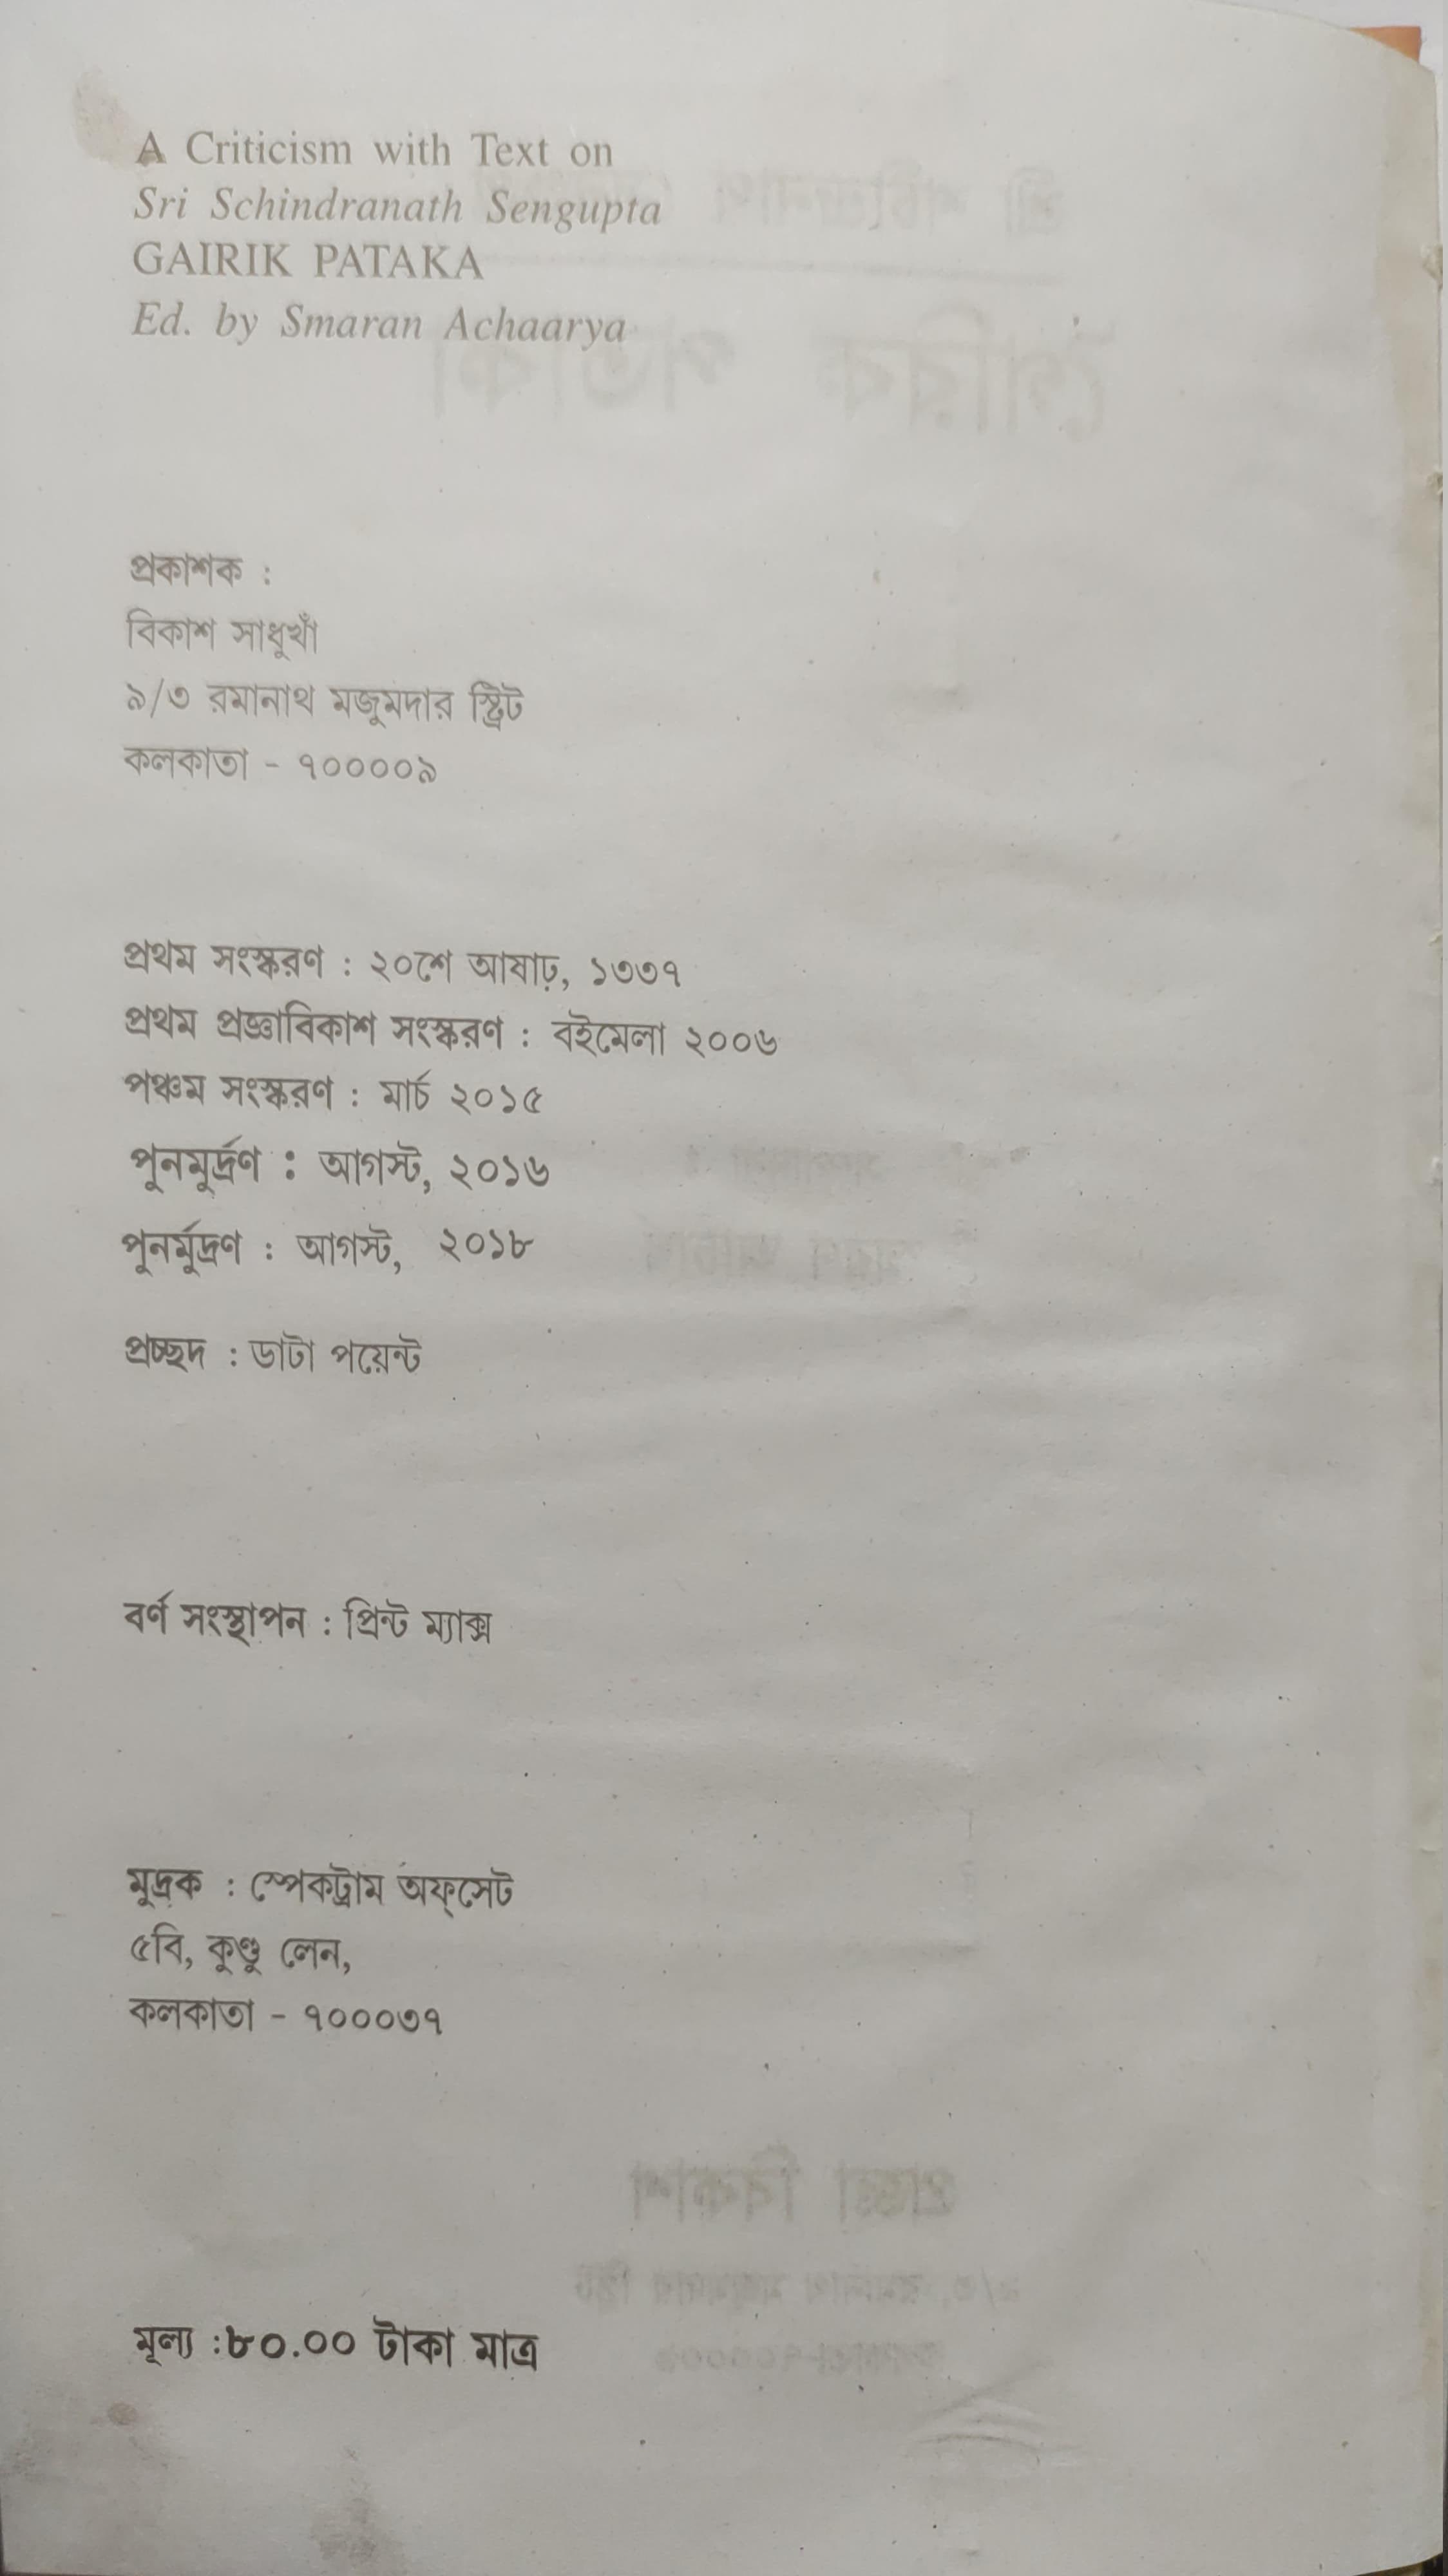 A Criticism with Text on
Sri Schindranath Sengupta
GAIRIK PATAKA
Ed. by Smaran Achaarya
প্রকাশক :
বিকাশ সাধুখাঁ
৯/৩ রমানাথ মজুমদার স্ট্রিট
কলকাতা - ৭০০০০৯
প্রথম সংস্করণ : ২০শে আষাঢ়, ১৩৩৭
প্রথম প্রজ্ঞাবিকাশ সংস্করণ : বইমেলা ২০০৬
পঞ্চম সংস্করণ : মার্চ ২০১৫
পুনমুর্দ্রণ : আগস্ট, ২০১৬
পুনর্মুদ্রণ : আগস্ট, ২০১৮
প্রচ্ছদ : ডাটা পয়েন্ট
বর্ণ সংস্থাপন : প্রিন্ট ম্যাক্স
মুদ্রক : স্পেকট্রাম অফ্‌সেট
৫বি, কুণ্ডু লেন,
কলকাতা - ৭০০০৩৭
মূল্য :৮০.০০ টাকা মাত্র